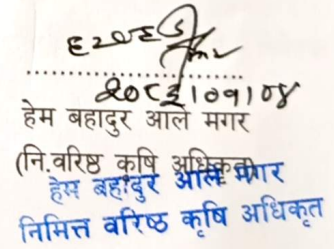 २०८३।०१।०४
हेम बहादुर आले मगर
(नि.वरिष्ठ कृषि अधिकृत)
हेम बहादुर आले मगर
निमित्त वरिष्ठ कृषि अधिकृत